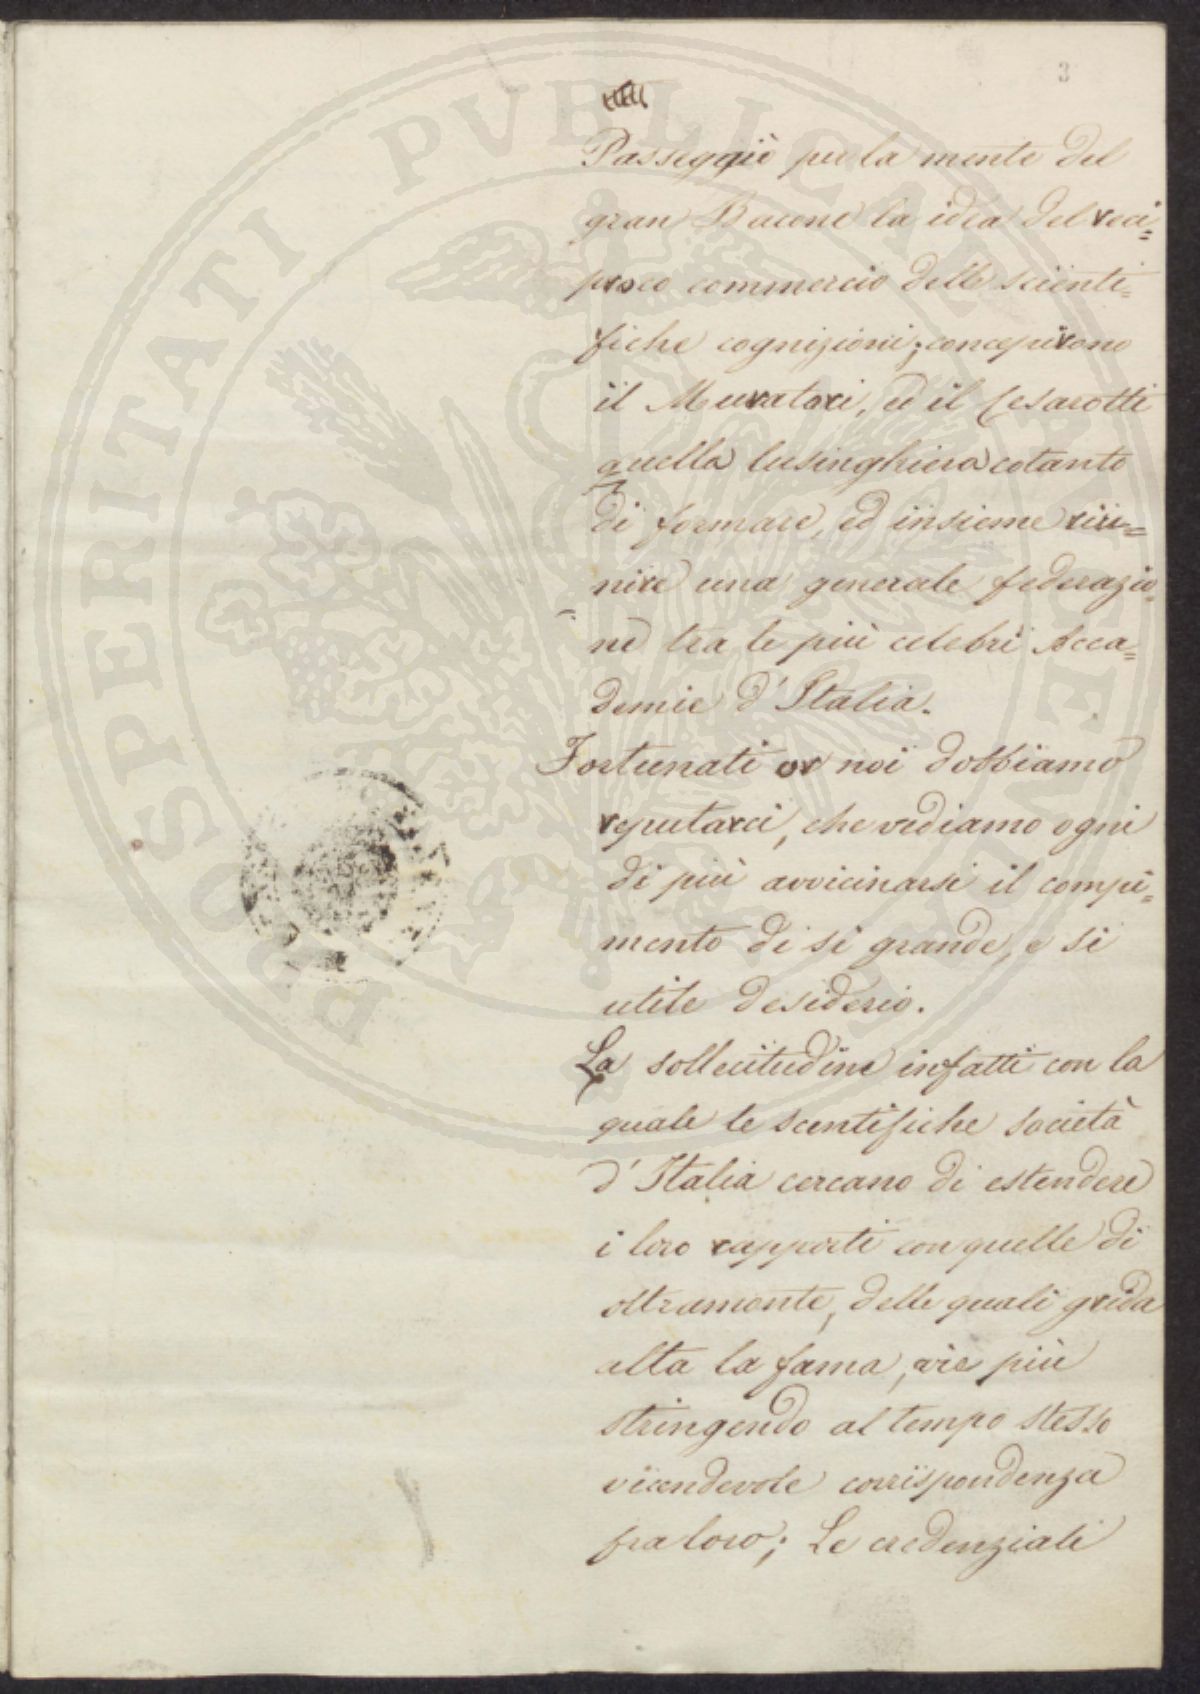 3
Passeggiò per la mente del
gran Bacone la idea del reci=
proco commercio delle scienti=
fiche cognizioni; concepirono
il Muratori, ed il Cesarotti
quella lusinghiera cotanto
di formare, ed insieme riu=
nire una generale federazio=
ne tra le più celebri Acca=
demie d'Italia.
Fortunati or noi dobbiamo
reputarci, che vediamo ogni
dì più avvicinarsi il compi=
mento di sì grande, e sì
utile desiderio.
La sollecitudine infatti con la
quale le scentifiche società
d'Italia cercano di estendere
i loro rapporti con quelle di
oltramonte, delle quali grida
alta la fama, vie più
stringendo al tempo stesso
vicendevole corrispondenza
fra loro; Le credenziali
PROSPERITATI PVBLICAE